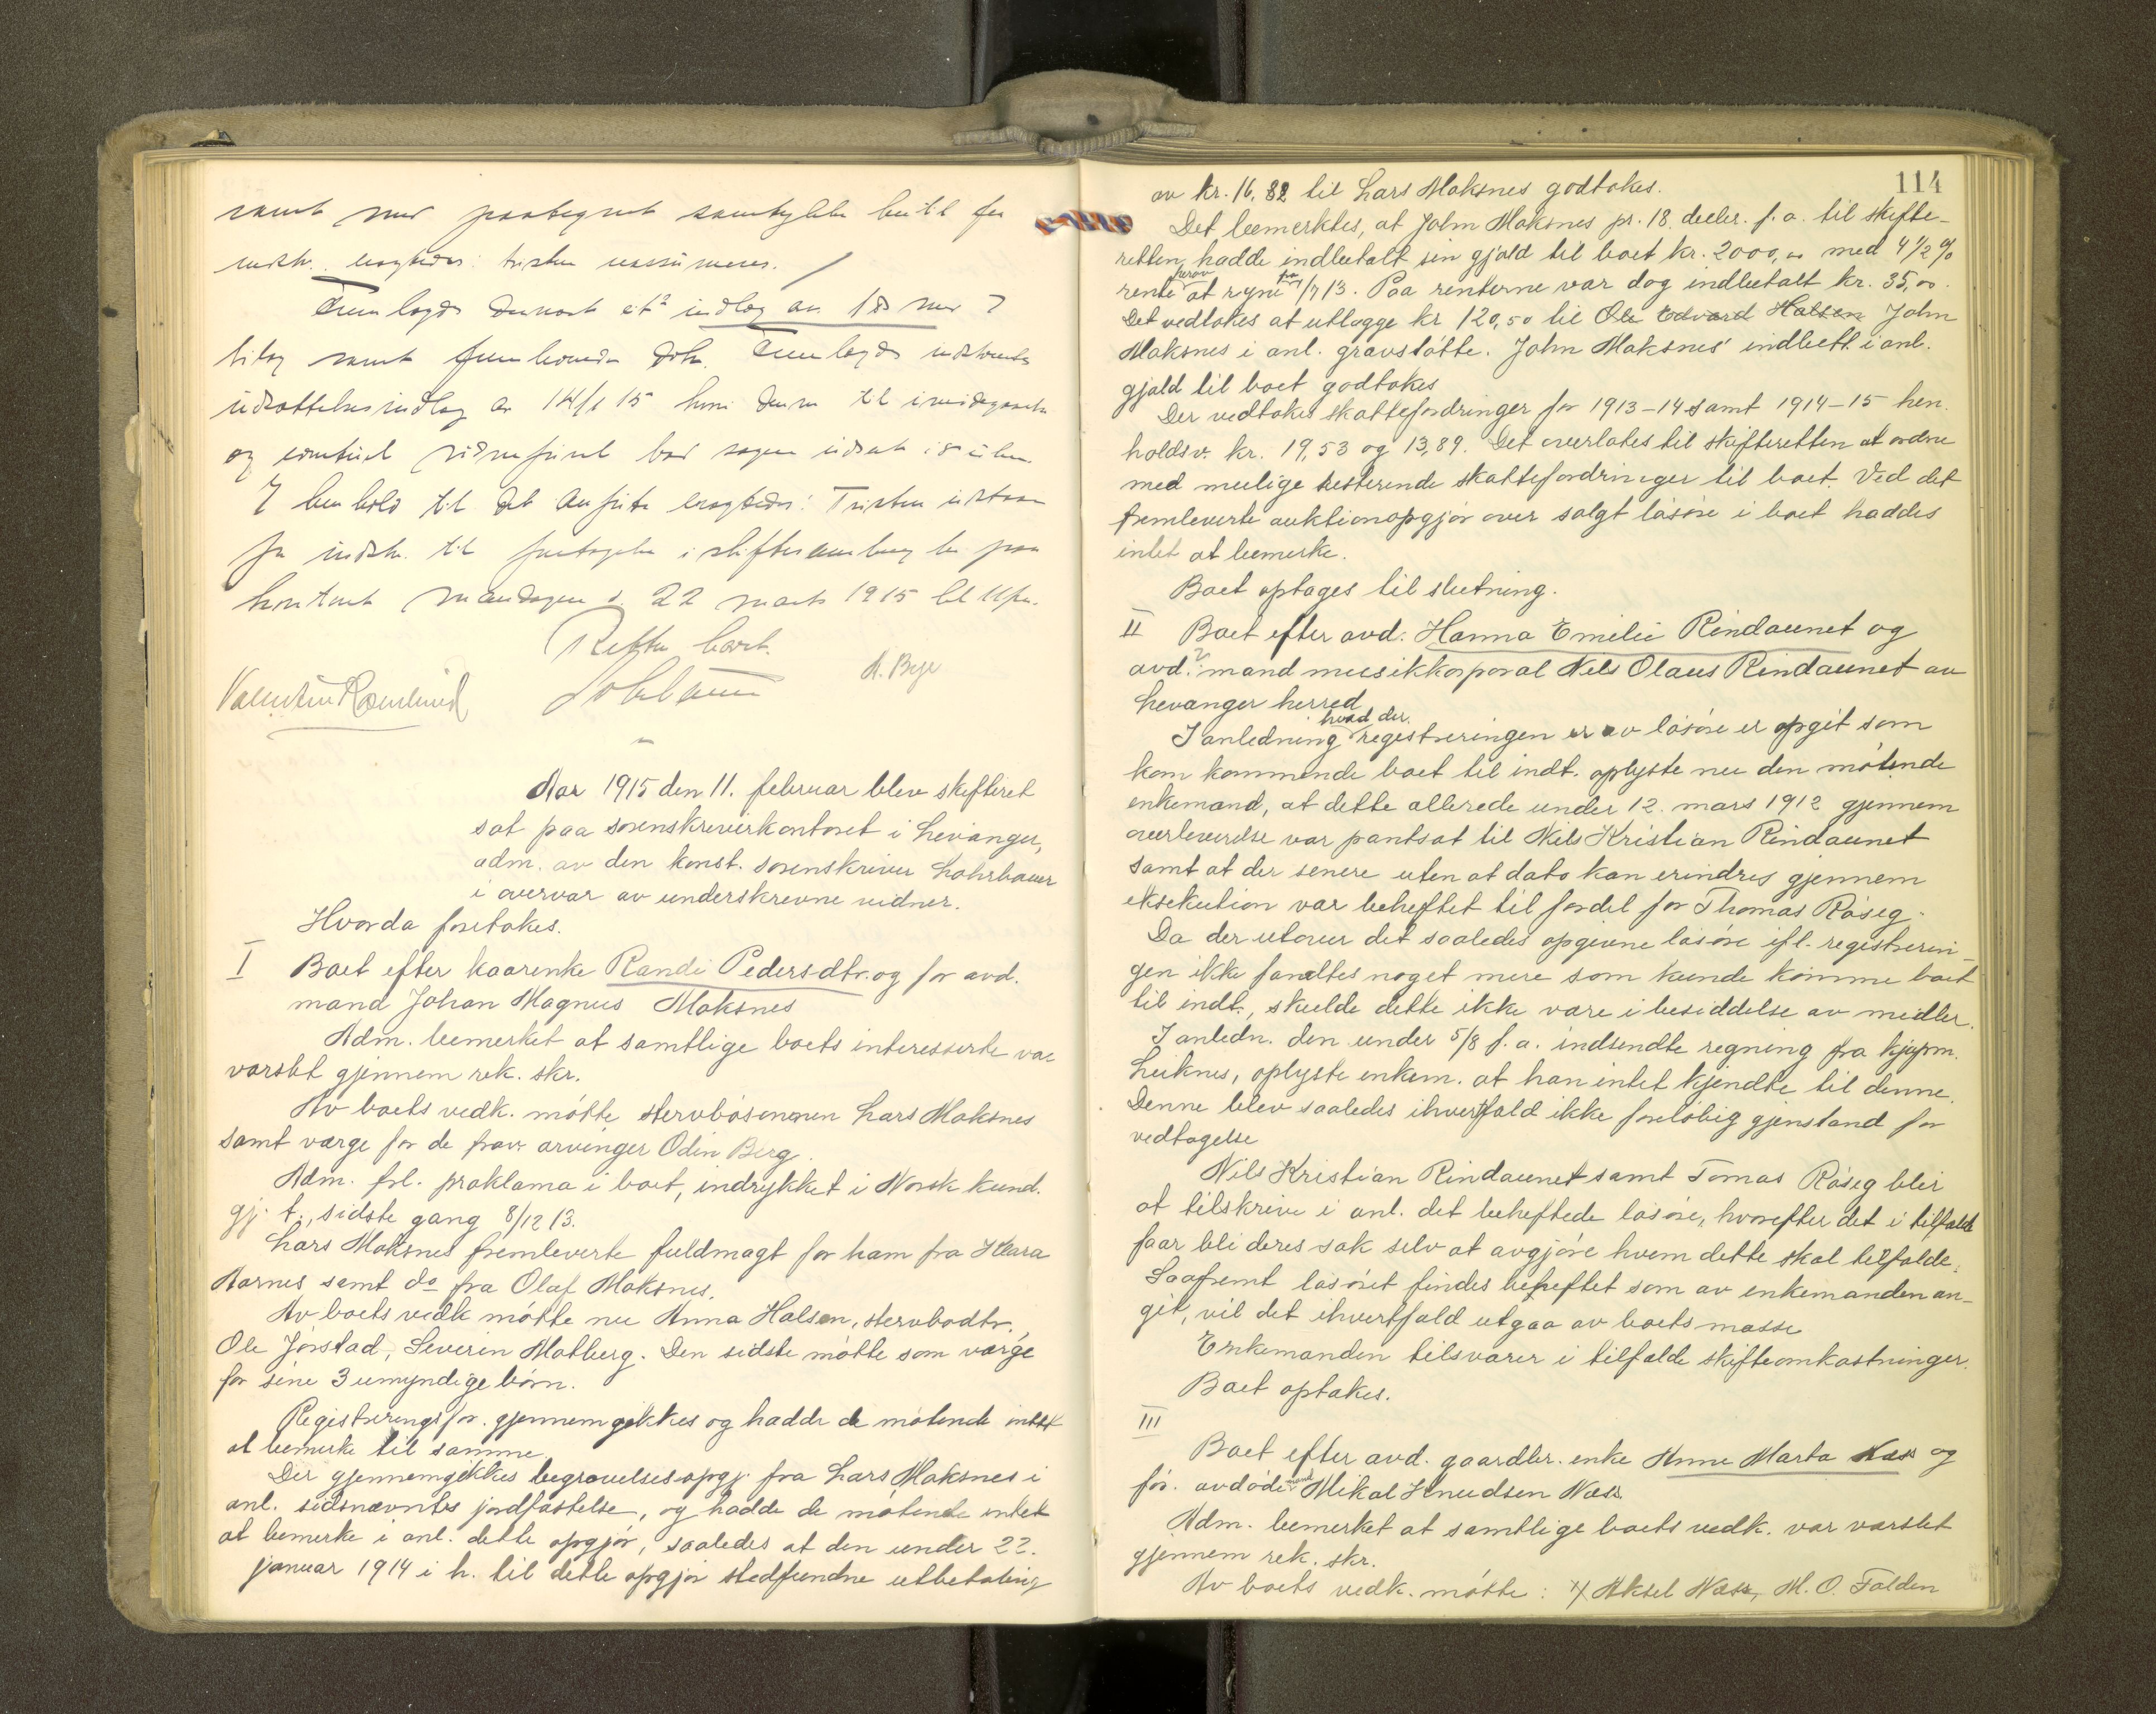 samt med paategnet samtykke
indst.
Fremlagdes indlæg av 18 med 7
bilag samt Fremlagdes
udsættelsesindlæg av 14/1 15 til
og sagen
I henhold til det anførte : Fristen
for indst. til foretagelse i skiftesamling her paa
kontoret mandagen d. 22 marts 1915 kl
Retten hævet.
Lohrbauer
A. Beye
Valentin
Aar 1915 den 11. februar blev skifteret
sat paa sorenskriverkontoret i Levanger,
adm. av den konst. sorenskriver Lohrbauer
i overvær av underskrevne vidner.
Hvorda foretokes.
I Boet efter kaarenke Randi Pedersdtr. og før avd.
mand Johan Magnus Moksnes
Adm. bemerket at samtlige boets interesserte var
varslet gjennem rek. skr.
Av boets vedk. møtte stervbosønnen Lars Moksnes
samt værge for de frav. arvinger Odin Berg.
Adm. frl. proklama i boet, indrykket i Norsk kund.
gj. t., sidste gang 8/12 13.
Lars Moksnes fremleverte fuldmagt for ham fra Klara
Aarnes samt do fra Olaf Moksnes.
Av boets vedk møtte nu Anna Halsen, stervbodtr.,
Ole Jørstad, Severin Matberg. Den sidste møtte som værge
for sine 3 umyndige børn.
Registreringsfor. gjennemgikkes og hadde de møtende intet
at bemerke til samme
Der gjennemgikkes begravelsesopgj. fra Lars Moksnes i
anl. sidsnævntes jordfæstelse, og hadde de møtende intet
at bemerke i anl. dette opgjør, saaledes at den under 22.
januar 1914 i h. til dette opgjør stedfundne utbetaling
114
av kr. 16,82 til Lars Moksnes godtokes.
Det bemerktes, at John Moksnes pr. 18. decbr. f. a. til skifte-
retten hadde indbetalt sin gjæld til boet kr. 2000,00 med 4 1/2 %
rente herav at regne fra 1/7 13. Paa renterne var dog indbetalt kr. 35,00.
Det vedtokes at utlægge kr 120,50 til Ole Edvard Halsen John
Moksnes i anl. gravstøtte. John Moksnes' indbet. i anl.
gjæld til boet godtokes
Der vedtokes skattefordringer for 1913-14 samt 1914-15 hen.
holdsv. kr. 19,53 og 13,89. Det overlates til skifteretten at ordne
med mulige resterende skattefordringer til boet. Ved det
fremleverte auktionopgjør over solgt løsøre i boet haddes
intet at bemerke.
Boet optages til slutning.
II Boet efter avd. Hanna Emilie Rindaunet og
avd.? mand musikkorporal Nils Olaus Rindaunet av
Levanger herred
I anledning hvad der registreringen er av løsøre er opgit som
kom kommende boet til indt. oplyste nu den møtende
enkemand, at dette allerede under 12. mars 1912 gjennem
overleverelse var pantsat til Nils Kristian Rindaunet
samt at der senere uten at dato kan erindres gjennem
eksekution var beheftet til fordel for Thomas Røseg.
Da der utover det saaledes opgivne løsøre ifl. registrerin-
gen ikke fandtes noget mere som kunde komme boet
til indt., skulde dette ikke være i besiddelse av midler.
I anledn. den under 5/8 f. a. indsendte regning fra kjøpm.
Leiknes, oplyste enkem. at han intet kjendte til denne.
Denne blev saaledes ihvertfald ikke foreløbig gjenstand for
vedtagelse
Nils Kristian Rindaunet samt Tomas Røseg blir
at tilskrive i anl. det beheftede løsøre, hvorefter det i tilfælde
faar bli deres sak selv at avgjøre hvem dette skal tilfalde.
Saafremt løsøret findes beheftet som av enkemanden an-
git, vil det ihvertfald utgaa av boets masse
Enkemanden tilsvarer i tilfælde skifteomkostninger.
Boet optakes.
III
Boet efter avd. gaardbr. enke Anne Marta Næss og
før. avdøde mand Mikal Knudsen Næss.
Adm. bemerket at samtlige boets vedk. var varslet
gjennem rek. skr.
Av boets vedk. møtte: Aksel Næss, M. O. Falden